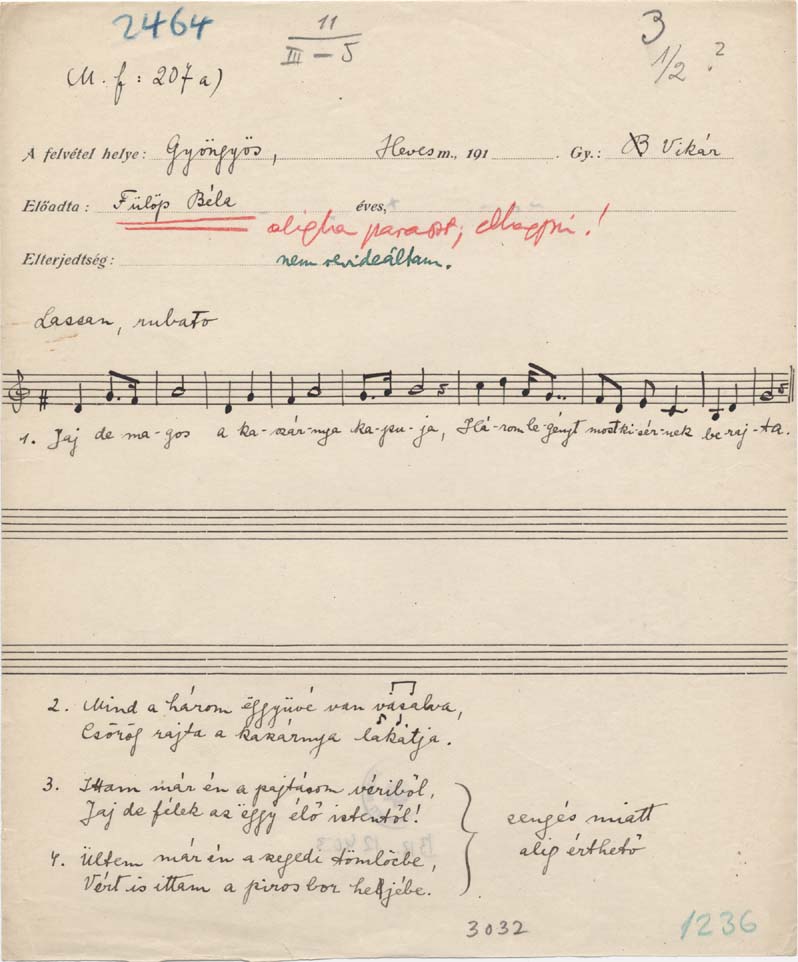 2464
11
III – 5
3
1/2 ?
(M. f : 207 a)
A felvétel helye: Gyöngyös, Heves m., 191 . Gy.: B Vikár
Előadta: Fülöp Béla éves,
aligha paraszt; elhagyni!
Elterjedtség: nem revideáltam.
Lassan, rubato
1. Jaj de ma-gos a ka-szár-nya ka-pu-ja, Há-rom le-gényt most ki-sér-nek be raj-ta.
2. Mind a három ëggyüvé van vasalva,
Csörög rajta a kaszárnya lakatja.
3. Ittam már én a pajtásom vériből,
Jaj de félek az ëggy élő istentől!
zengés miatt
alig érthető
4. Ültem már én a szegedi tömlöcbe,
Vért is ittam a piros bor heljébe.
3032
1236